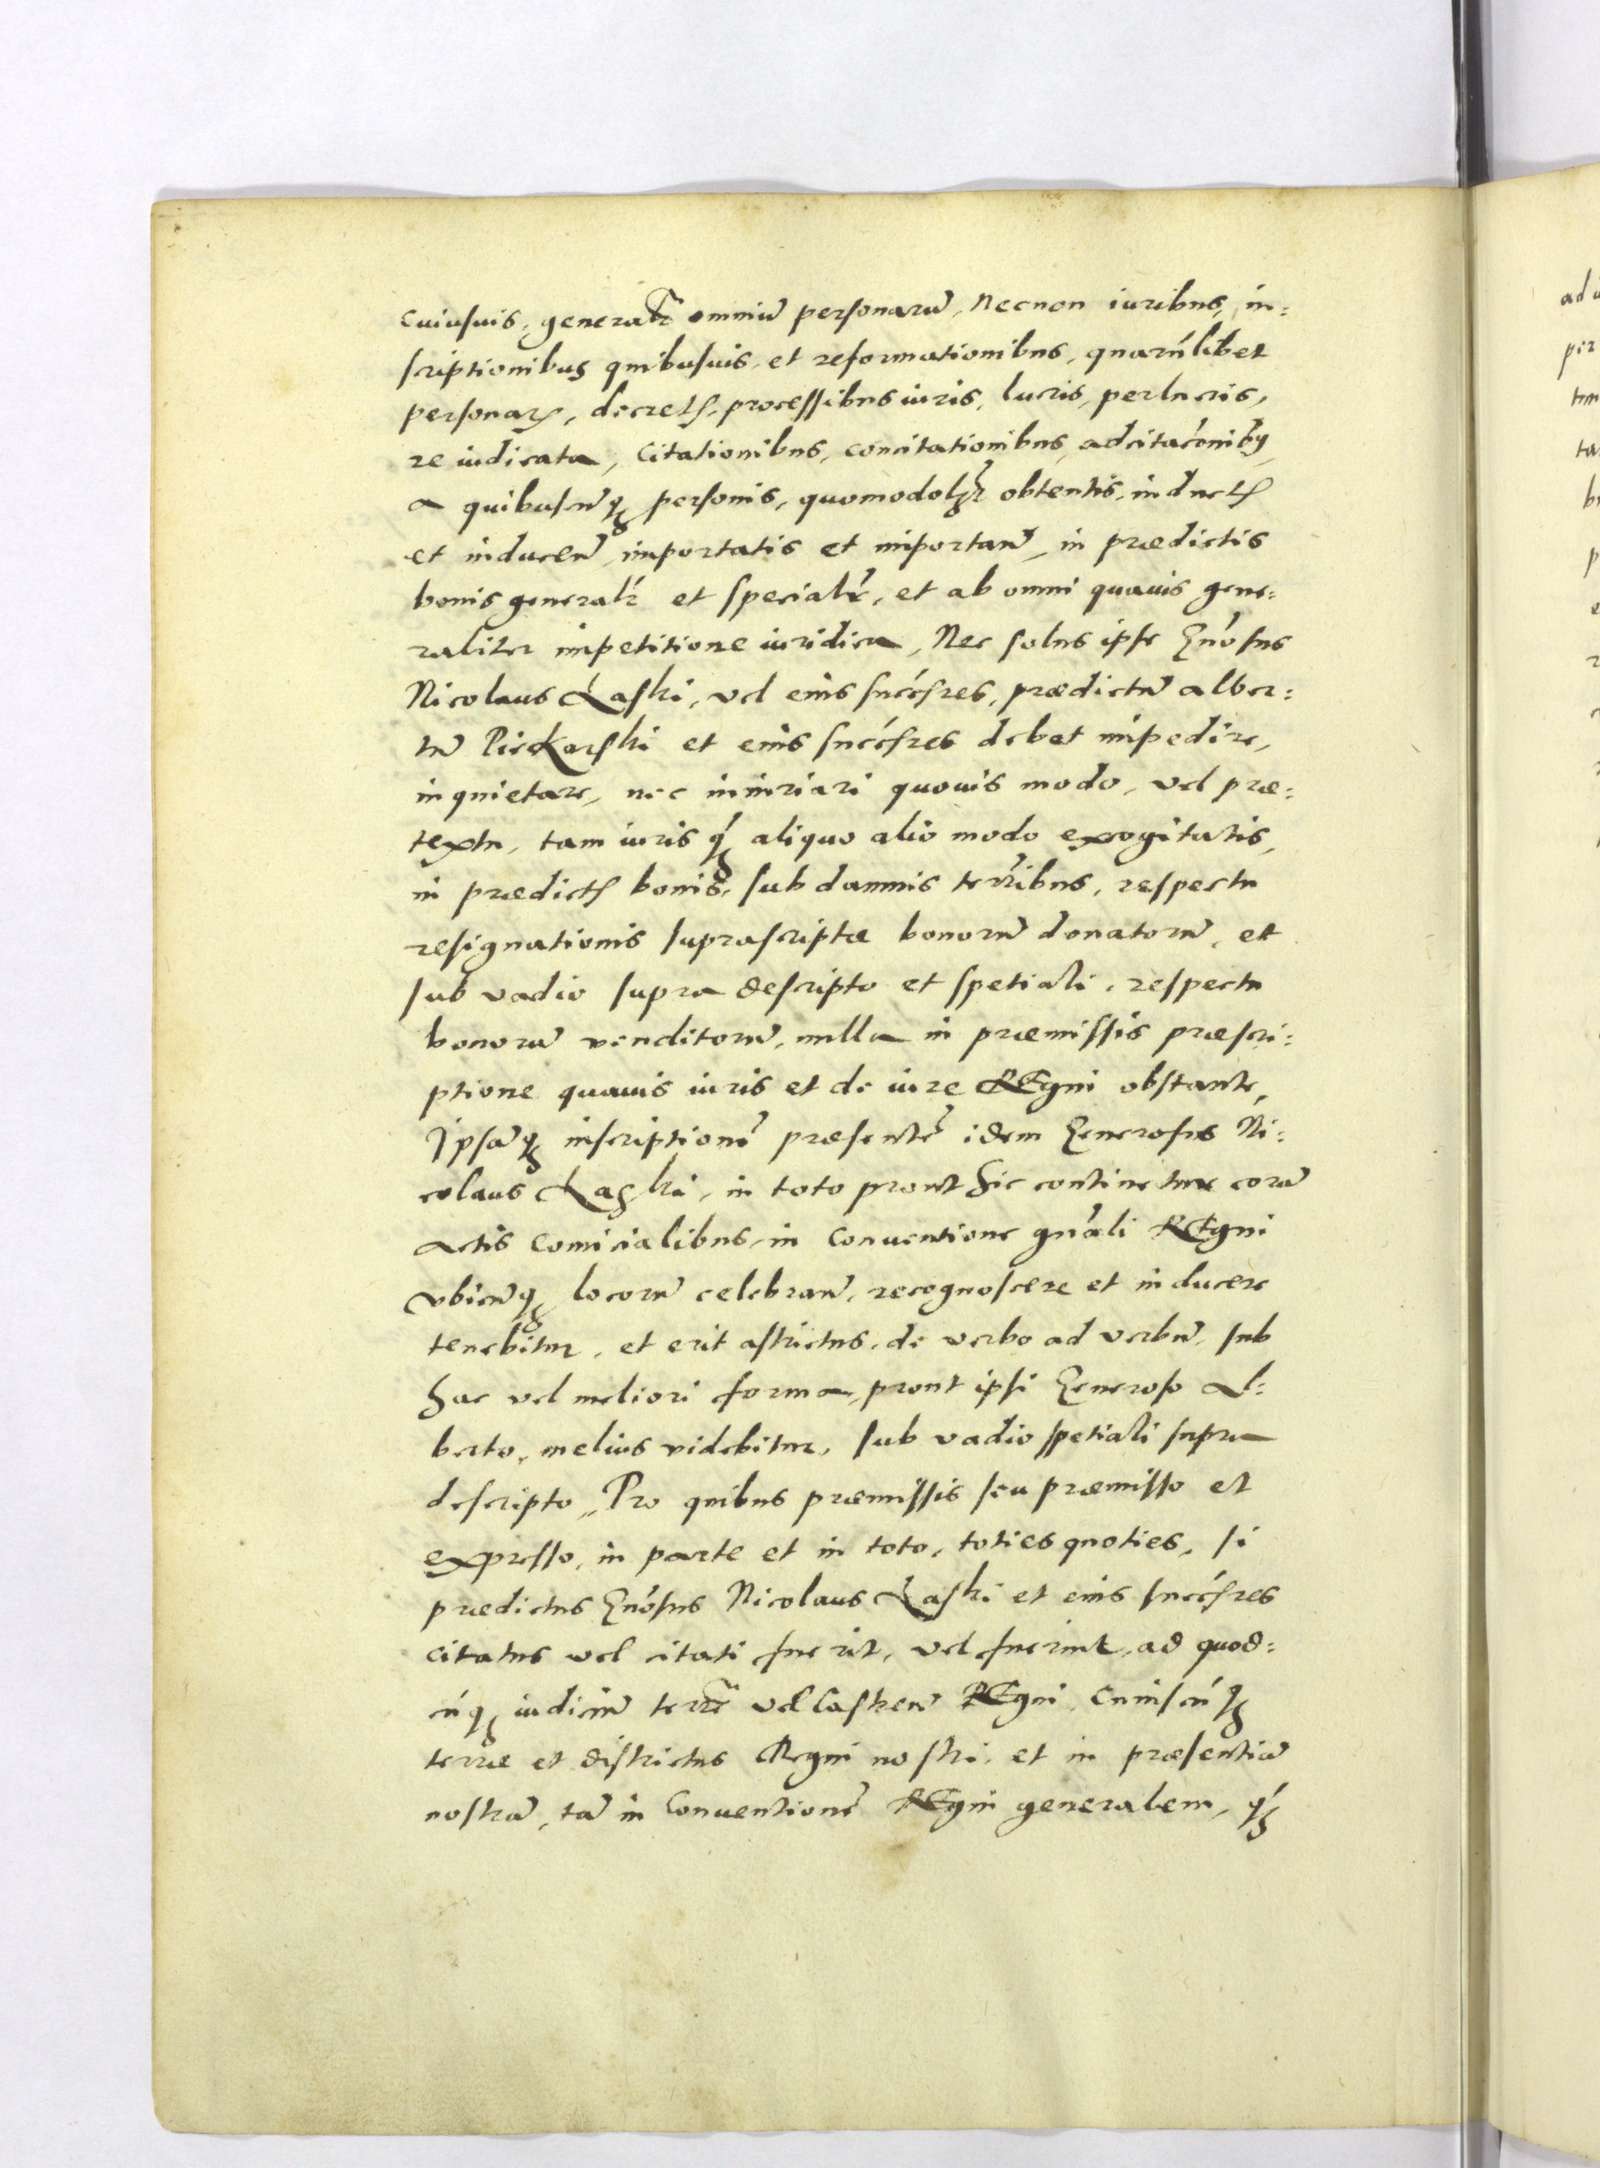 cuiusuis, generatr̃ omniũ personarũ, Necnon iuribus, in=
scriptionibus quibusuis, et reformationibus, quarũlibet
personarꝫ, decretꝭ, processibus iuris, lucris, perlucris,
re iudicata, Citationibus, concitationibus, adcitac̃onibꝰ
a quibuscũqꝫ personis, quomodolꝫt obtentis, inductꝭ
et inducen̄, importatis et importan̄, in prædictis
bonis generalr̃ et specialr̃, et ab omni quauis gene=
raliter impetitione iuridica, Nec solus ipse Gnõsus
Nicolaus Laski, vel eius succ̃sres, prædictũ alber=
tũ Piekarski et eius succ̃sres debet impedire,
inquietare, nec iniuriari quouis modo, vel præ=
textu, tam iuris qꝫ aliquo alio modo exogitatis,
in prædictꝭ bonis, sub damnis terr̃ibus, respectu
resignationis suprascriptæ bonorũ donatorũ, et
sub vadio supra descripto et spetiali, respectu
bonorũ venditorũ, nulla in præmissis præscri=
ptione quauis iuris et de iure REgni obstante,
Ipsãqꝫ inscriptionẽ præsentẽ idem Generosus Ni=
colaus Laski, in toto prout hic continetur corã
Actis Comicialibus, in Conuentione gnãli REgni
vbicũqꝫ locorũ celebran̄, recognoscere et inducere
tenebitur, et erit astrictus, de verbo ad verbũ, sub
hac vel meliori forma, prout ipsi Generoso Al=
berto, melius videbitur, sub vadio spetiali supra
descripto, Pro quibus præmissis seu præmisso et
expresso, in parte et in toto, toties quoties, si
prædictus Gnõsus Nicolaus Laski et eius succ̃sres
citatus vel citati fuerit, vel fuerint, ad quod=
cũqꝫ iudiciũ terrẽ vel Castren̄ REgni, Cuiuscũqꝫ
terræ et districtus Regni nostri, et in præsentiã
nostrã, tã in Conuentionẽ REgni generalem, qꝫ